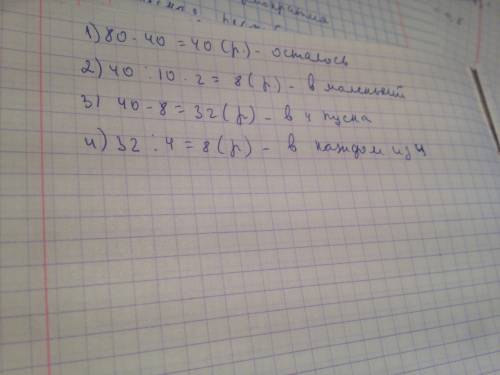 1) 80 - 40 = 40 (р.) - осталось
2) 40 : 10 · 2 = 8 (р) - в маленький
3) 40 - 8 = 32 (р) - в 4 пуска
4) 32 : 4 = 8 (р) - в каждом из 4